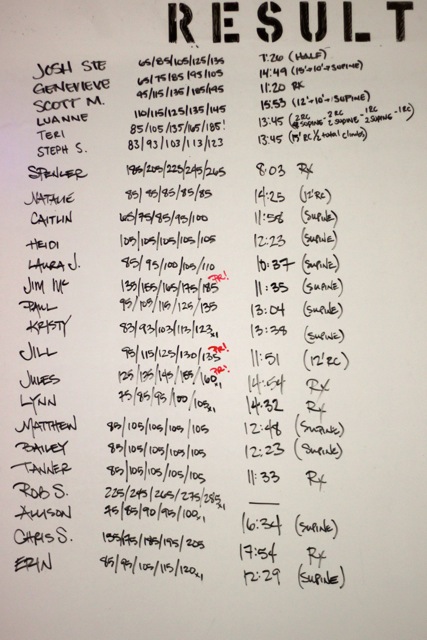 RESULT
JOSH STE 65/85/105/125/135 7:20 (HALF)
GENEVIEVE 65/75/85/95/105 14:49 (15'→10'→SUPINE)
SCOTT M. 95/115/135/185/195 11:20 RX
LUANNE 110/115/125/135/145 15:53 (12'→10'→SUPINE)
TERI 85/105/135/165/185! 13:45
STEPH S. 83/93/103/113/123 13:45 (15' RC 1/2 total climbs)
SPENCER 185/205/225/245/265 8:03 Rx
NATALIE 85/85/85/85/85 14:25 (12'RC)
CAITLIN 65/75/85/95/100 11:58 (SUPINE)
HEIDI 105/105/105/105/105 12:23 (SUPINE)
LAURA J. 85/95/100/105/110 10:37 (SUPINE)
JIM MC 135/155/165/175/185 PR! 11:35 (SUPINE)
PAUL 95/105/115/125/135 13:04 (SUPINE)
KRISTY 83/93/103/113/123x1 13:38 (SUPINE)
JILL 95/115/125/130/135 PR! 11:51 (12'RC)
JULES 125/135/145/155/160x1 PR! 14:54 Rx
LYNN 75/85/95/100/105x1 14:32 Rx
MATTHEW 85/105/105/105/105 12:48 (SUPINE)
BAILEY 85/105/105/105/105 12:23 (SUPINE)
TANNER 85/105/105/105/105 11:33 Rx
ROB S. 225/245/265/275/285x1 —
ALLISON 75/85/90/95/100x1 16:34 (SUPINE)
CHRIS S. 155/175/185/195/205 17:54 Rx
ERIN 85/95/105/115/120x1 12:29 (SUPINE)